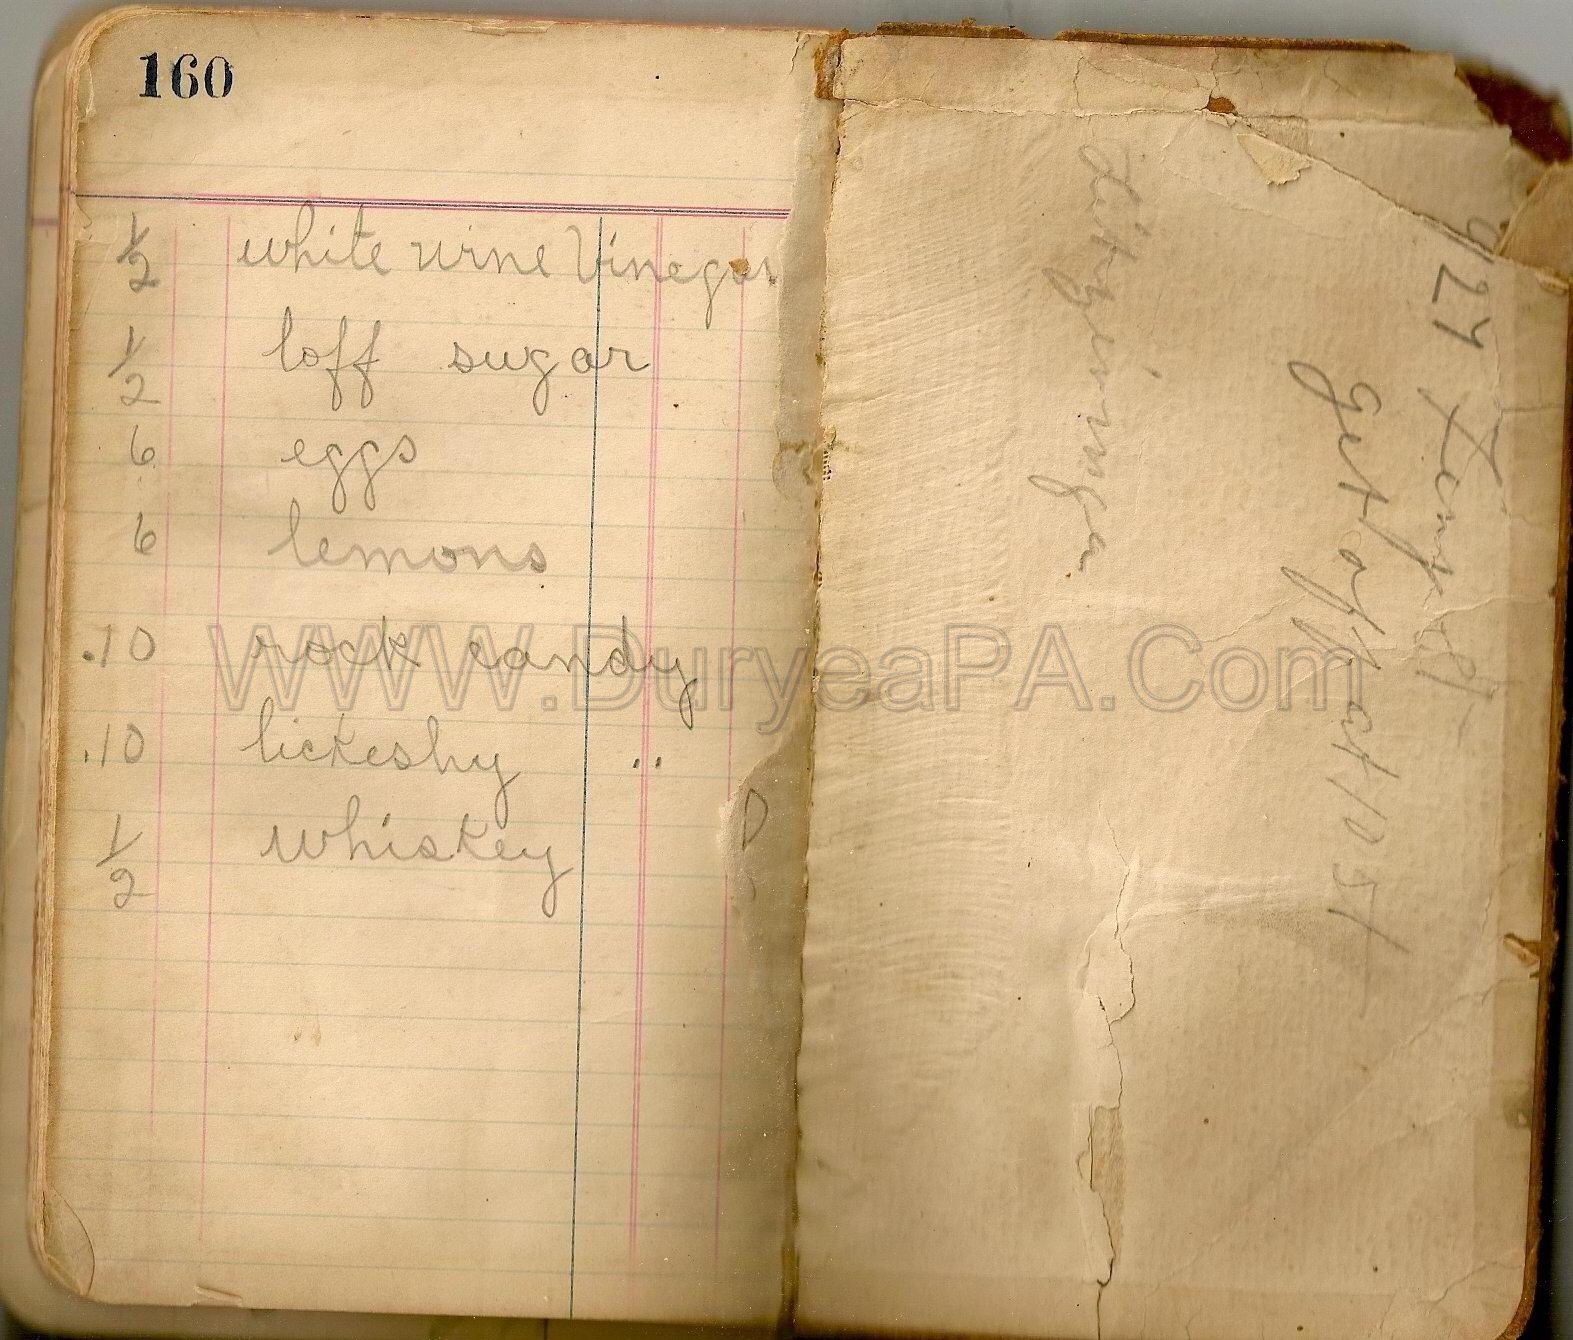 160
1/2 white wine Vinegar.
1/2 loff sugar
6 eggs
6 lemons
.10 rock candy
.10 lickeshy "
1/2 whiskey
WWW.DuryeaPA.Com
get off at 105